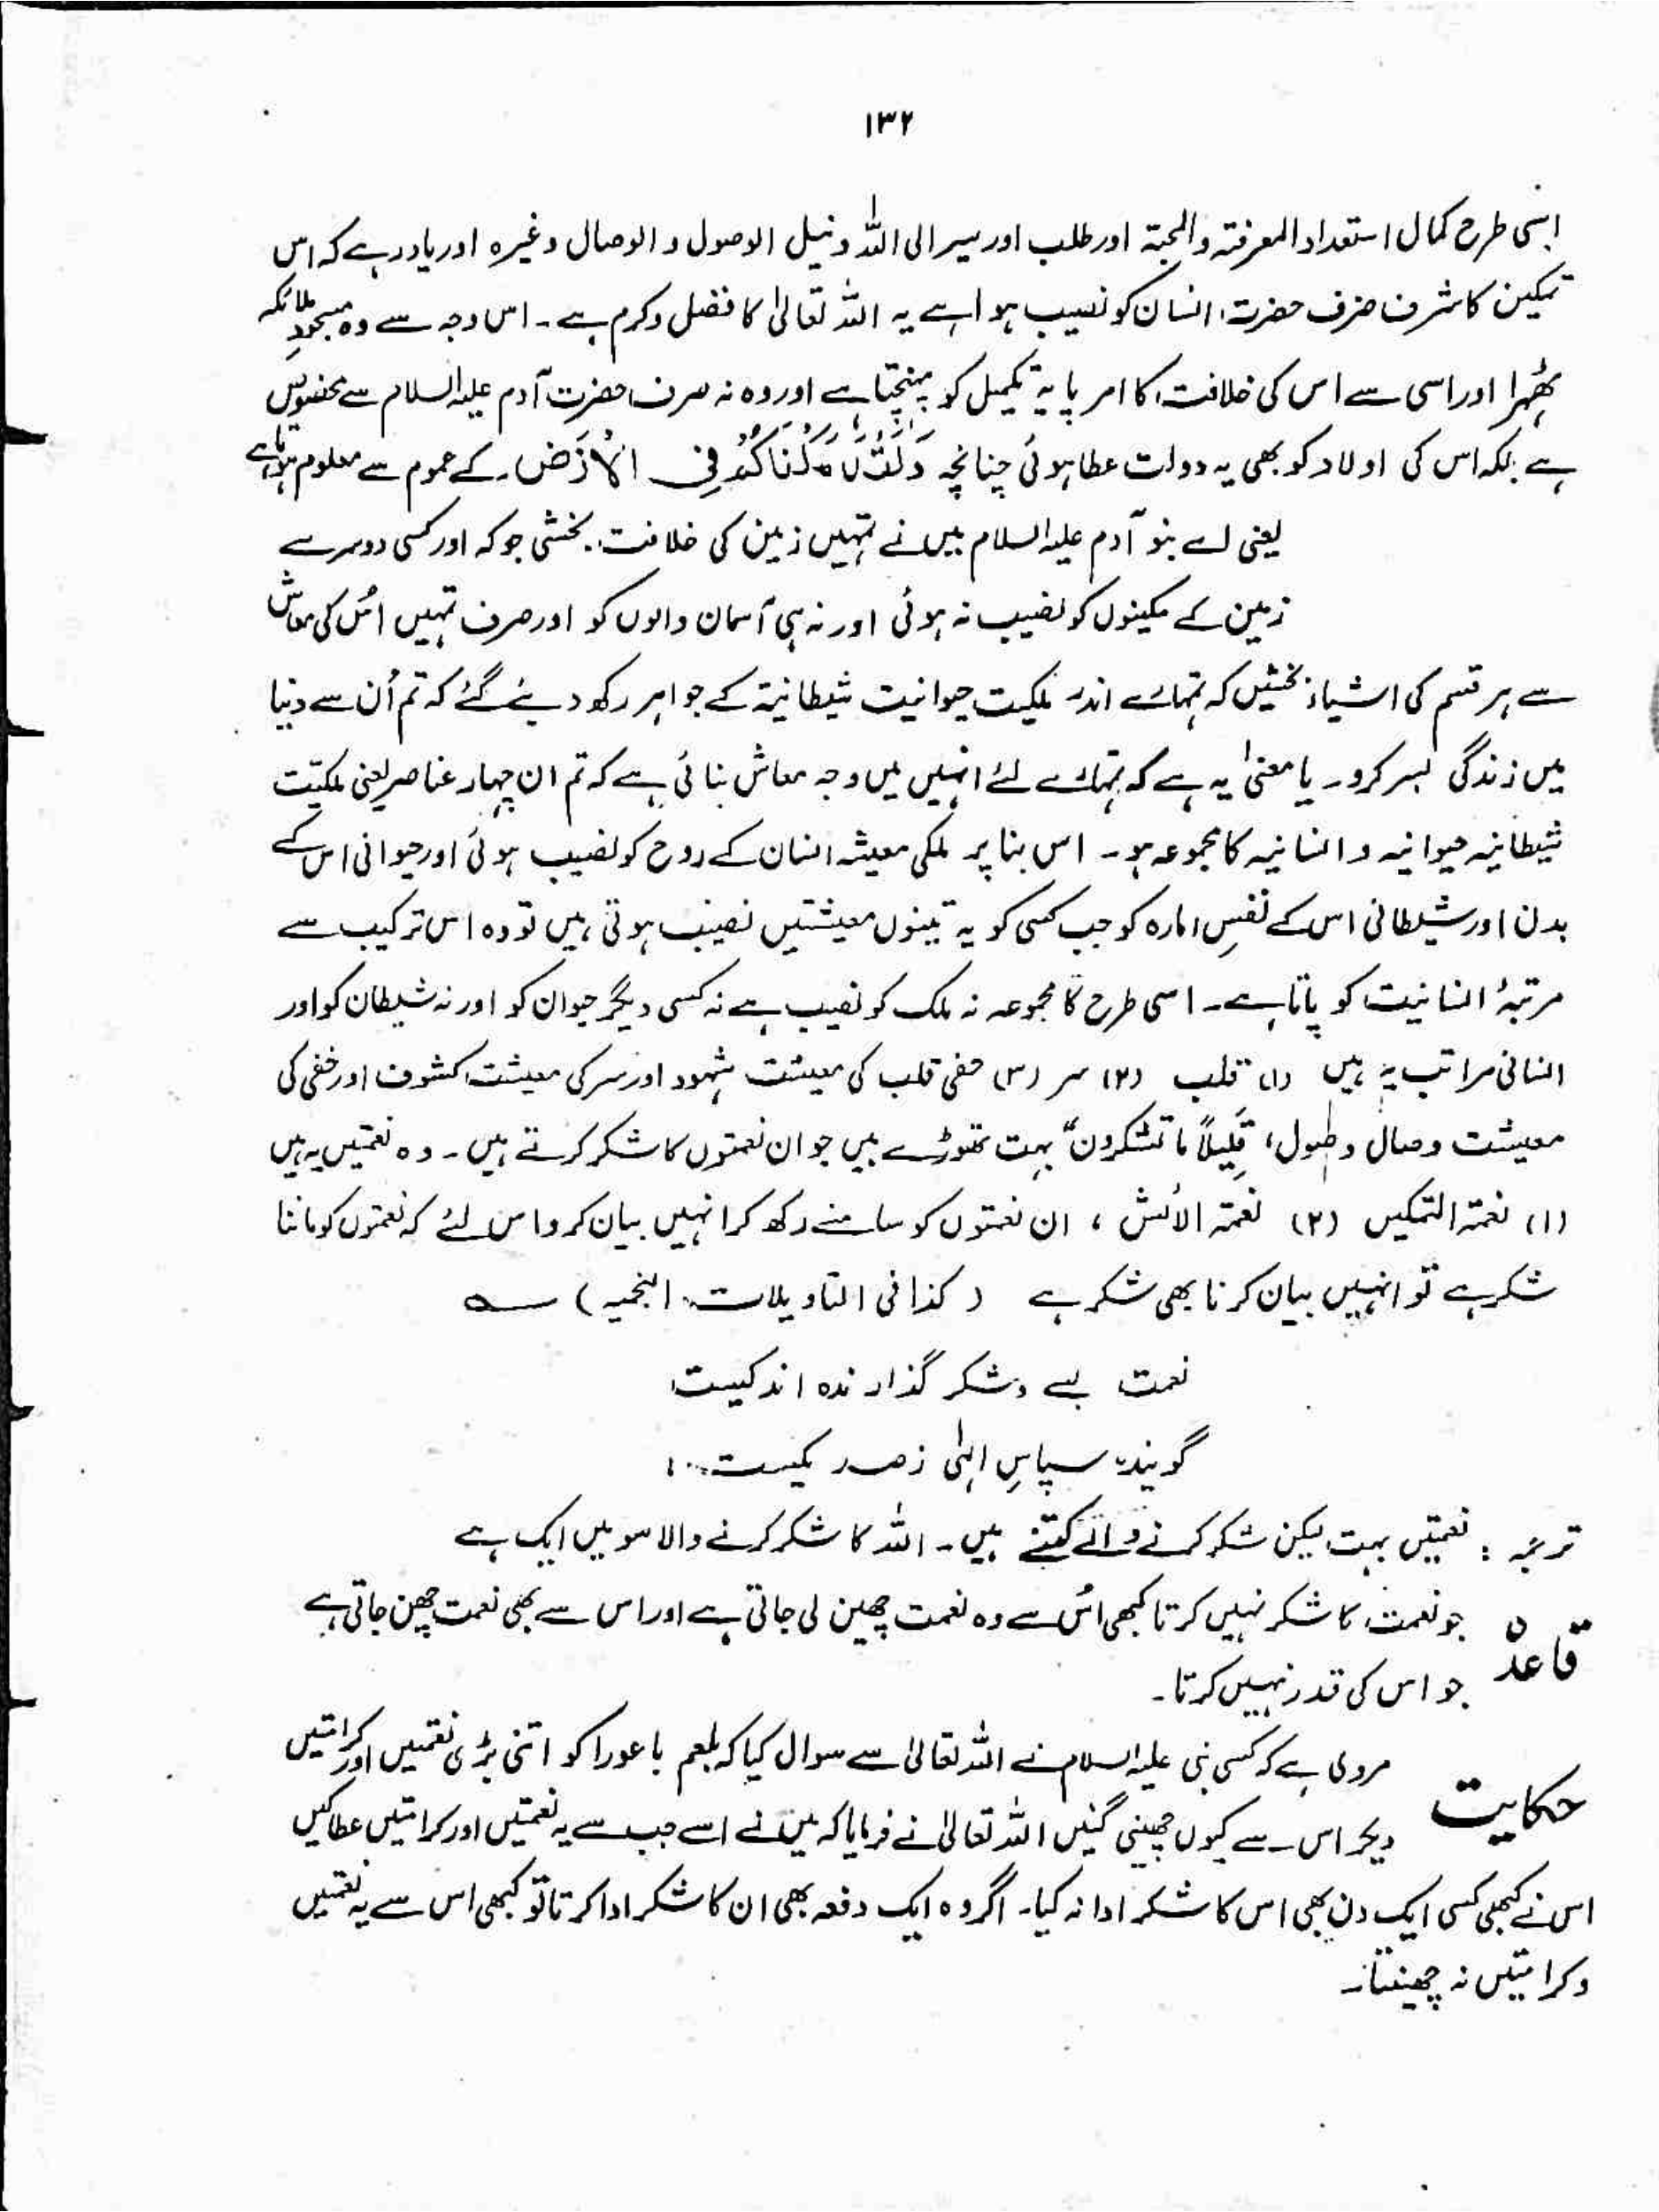 ۱۳۲
اسی طرح کمال استعداد المعرفتہ والمحبۃ اور طلب اور سیر الی اللہ ونیل الوصول و الوصال وغیرہ اور یاد رہے کہ اس
تمکین کا شرف صرف حضرت انسان کو نصیب ہوا ہے یہ اللہ تعالیٰ کا فضل وکرم ہے۔ اس وجہ سے وہ مسجودِ ملائکہ
ٹھہرا اور اسی سے اس کی خلافت کا امر پایۂ تکمیل کو پہنچتا ہے اور وہ نہ صرف حضرت آدم علیہ السلام سے مخصوص
ہے بلکہ اس کی اولاد کو بھی یہ دولت عطا ہوئی چنانچہ وَلَقَدْ مَكَّنَّاكُمْ فِی الْاَرْضِ۔ کے عموم سے معلوم ہوتا ہے
یعنی اے بنو آدم علیہ السلام میں نے تمہیں زمین کی خلافت بخشی جو کہ اور کسی دوسرے
زمین کے مکینوں کو نصیب نہ ہوئی اور نہ ہی آسمان والوں کو اور صرف تمہیں اُس کی معاش
سے ہر قسم کی اشیاء بخشیں کہ تمہارے اندر ملکیت حیوانیت شیطانیۃ کے جواہر رکھ دیئے گئے کہ تم اُن سے دنیا
میں زندگی بسر کرو۔ یا معنیٰ یہ ہے کہ تمہارے لئے انہیں میں وجہ معاش بنائی ہے کہ تم ان چہار عناصر یعنی ملکیّت
شیطانیہ حیوانیہ و انسانیہ کا مجموعہ ہو۔ اس بنا پر ملکی معیشہ انسان کے روح کو نصیب ہوئی اور حیوانی اس کے
بدن اور شیطانی اس کے نفسِ امارہ کو جب کسی کو یہ تینوں معیشتیں نصیب ہوتی ہیں تو وہ اس ترکیب سے
مرتبۂ انسانیت کو پاتا ہے۔ اسی طرح کا مجموعہ نہ ملک کو نصیب ہے نہ کسی دیگر حیوان کو اور نہ شیطان کو اور
انسانی مراتب یہ ہیں (۱) قلب (۲) سر (۳) خفی قلب کی معیشت شہود اور سر کی معیشت کشوف اور خفی کی
معیشت وصال وطول، قَلِیلاً ما تشکرون" بہت تھوڑے ہیں جو ان نعمتوں کا شکر کرتے ہیں۔ وہ نعمتیں یہ ہیں
(۱) نعمۃ التمکیں (۲) نعمۃ الائش ، ان نعمتوں کو سامنے رکھ کر انہیں بیان کرو اس لئے کہ نعمتوں کو ماننا
شکر ہے تو انہیں بیان کرنا بھی شکر ہے (کذا فی التاویلات النجمیہ) ؎
نعمت بسے و شکر گذارندہ اندکیست
گویندہ سپاسِ الہٰی زصد یکیست
ترجمہ : نعمتیں بہت لیکن شکر کرنے والے کتنے ہیں۔ اللہ کا شکر کرنے والا سو میں ایک ہے
قاعدہ جو نعمت کا شکر نہیں کرتا کبھی اُس سے وہ نعمت چھین لی جاتی ہے اور اس سے بھی نعمت چھن جاتی ہے
جو اس کی قدر نہیں کرتا۔
حکایت مروی ہے کہ کسی نبی علیہ السلام نے اللہ تعالیٰ سے سوال کیا کہ بلعم باعورا کو اتنی بڑی نعمتیں اور کرامتیں
دیکر اس سے کیوں چھینی گئیں اللہ تعالیٰ نے فرمایا کہ میں نے اسے جب سے یہ نعمتیں اور کرامتیں عطا کیں
اس نے کبھی کسی ایک دن بھی اس کا شکر ادا نہ کیا۔ اگر وہ ایک دفعہ بھی ان کا شکر ادا کرتا تو کبھی اس سے یہ نعمتیں
وکرامتیں نہ چھینتا۔